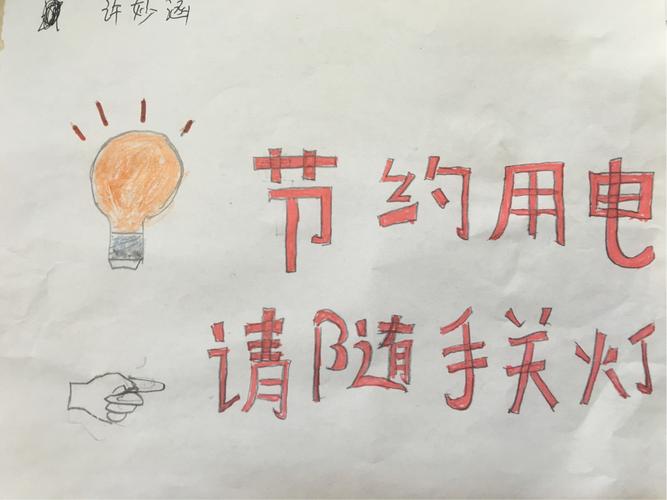 许妙涵
节约用电
请随手关灯